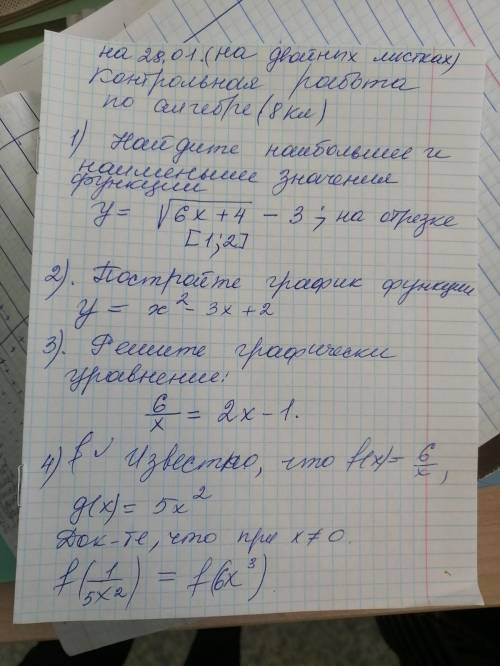 на 28.01. (на двойных листках)
Контрольная работа
по алгебре (8 кл)
1) Найдите наибольшее и
наименьшее значения
функции
y = √(6x + 4) - 3 ; на отрезке
[1; 2]
2). Постройте график функции
y = x² - 3x + 2
3). Решите графически
уравнение:
6/x = 2x - 1.
4) f ✓ Известно, что f(x) = 6/x,
g(x) = 5x²
Док-те, что при x ≠ 0.
f(1/5x²) = f(6x³)